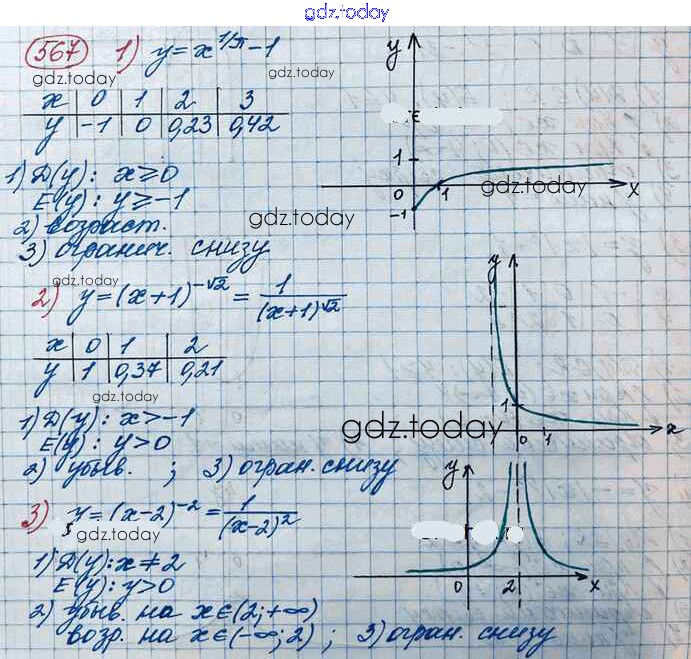 gdz.today
567 1) y = x^{1/π} - 1
gdz.today
gdz.today
x | 0 | 1 | 2 | 3
y | -1 | 0 | 0,23 | 0,42
y
1
0
1
x
-1
gdz.today
1) D(y): x ≥ 0
E(y): y ≥ -1
2) возраст.
gdz.today
3) огранич. снизу
gdz.today
2) y = (x+1)^{-√2} = 1/(x+1)^{√2}
x | 0 | 1 | 2
y | 1 | 0,37 | 0,21
gdz.today
y
1
0
1
x
gdz.today
1) D(y): x > -1
E(y): y > 0
2) убыв. ; 3) огран. снизу
3) y = (x-2)^{-2} = 1/(x-2)^2
gdz.today
y
0
2
x
1) D(y): x ≠ 2
E(y): y > 0
2) убыв. на x∈(2;+∞)
возр. на x∈(-∞;2) ; 3) огран. снизу